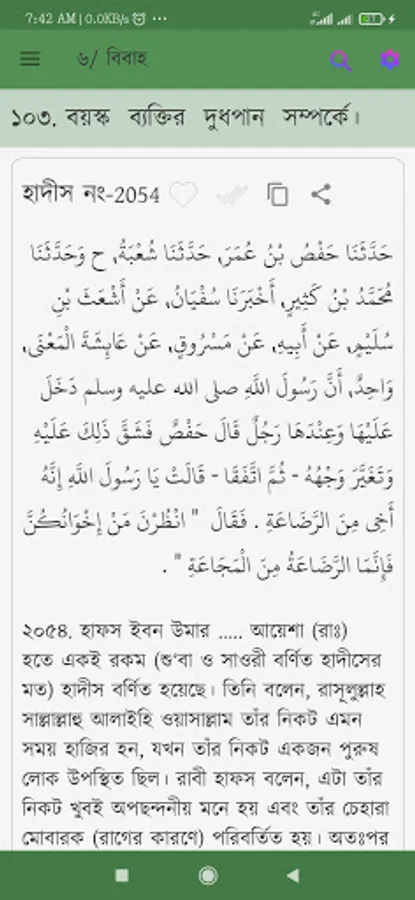 7:42 AM | 0.0KB/s
৬/ বিবাহ
১০৩. বয়স্ক ব্যক্তির দুধপান সম্পর্কে।
হাদীস নং-2054
حَدَّثَنَا حَفْصُ بْنُ عُمَرَ، حَدَّثَنَا شُعْبَةُ، ح وَحَدَّثَنَا
مُحَمَّدُ بْنُ كَثِيرٍ، أَخْبَرَنَا سُفْيَانُ، عَنْ أَشْعَثَ بْنِ
سُلَيْمٍ، عَنْ أَبِيهِ، عَنْ مَسْرُوقٍ، عَنْ عَايِشَةَ الْمَعْنَى،
وَاحِدٌ، أَنَّ رَسُولَ اللَّهِ صلى الله عليه وسلم دَخَلَ
عَلَيْهَا وَعِنْدَهَا رَجُلٌ قَالَ حَفْصٌ فَشَقَّ ذَلِكَ عَلَيْهِ
وَتَغَيَّرَ وَجْهُهُ - ثُمَّ اتَّفَقَا - قَالَتْ يَا رَسُولَ اللَّهِ إِنَّهُ
أَخِي مِنَ الرَّضَاعَةِ . فَقَالَ " انْظُرْنَ مَنْ إِخْوَانُكُنَّ
فَإِنَّمَا الرَّضَاعَةُ مِنَ الْمَجَاعَةِ " .
২০৫৪. হাফস ইবন উমার ..... আয়েশা (রাঃ)
হতে একই রকম (শু'বা ও সাওরী বর্ণিত হাদীসের
মত) হাদীস বর্ণিত হয়েছে। তিনি বলেন, রাসূলুল্লাহ
সাল্লাল্লাহু আলাইহি ওয়াসাল্লাম তাঁর নিকট এমন
সময় হাজির হন, যখন তাঁর নিকট একজন পুরুষ
লোক উপস্থিত ছিল। রাবী হাফস বলেন, এটা তাঁর
নিকট খুবই অপছন্দনীয় মনে হয় এবং তাঁর চেহারা
মোবারক (রাগের কারণে) পরিবর্তিত হয়। অতঃপর